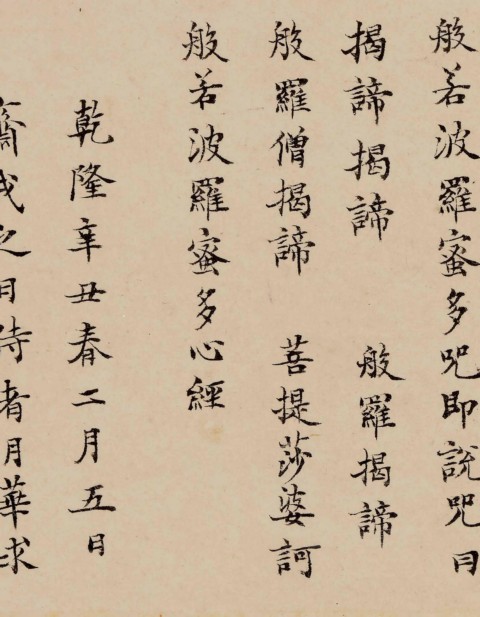 般若波羅蜜多咒即說咒曰
揭諦揭諦 般羅揭諦
般羅僧揭諦 菩提莎婆訶
般若波羅蜜多心經
乾隆辛丑春二月五日
齋戒之日侍者月華求